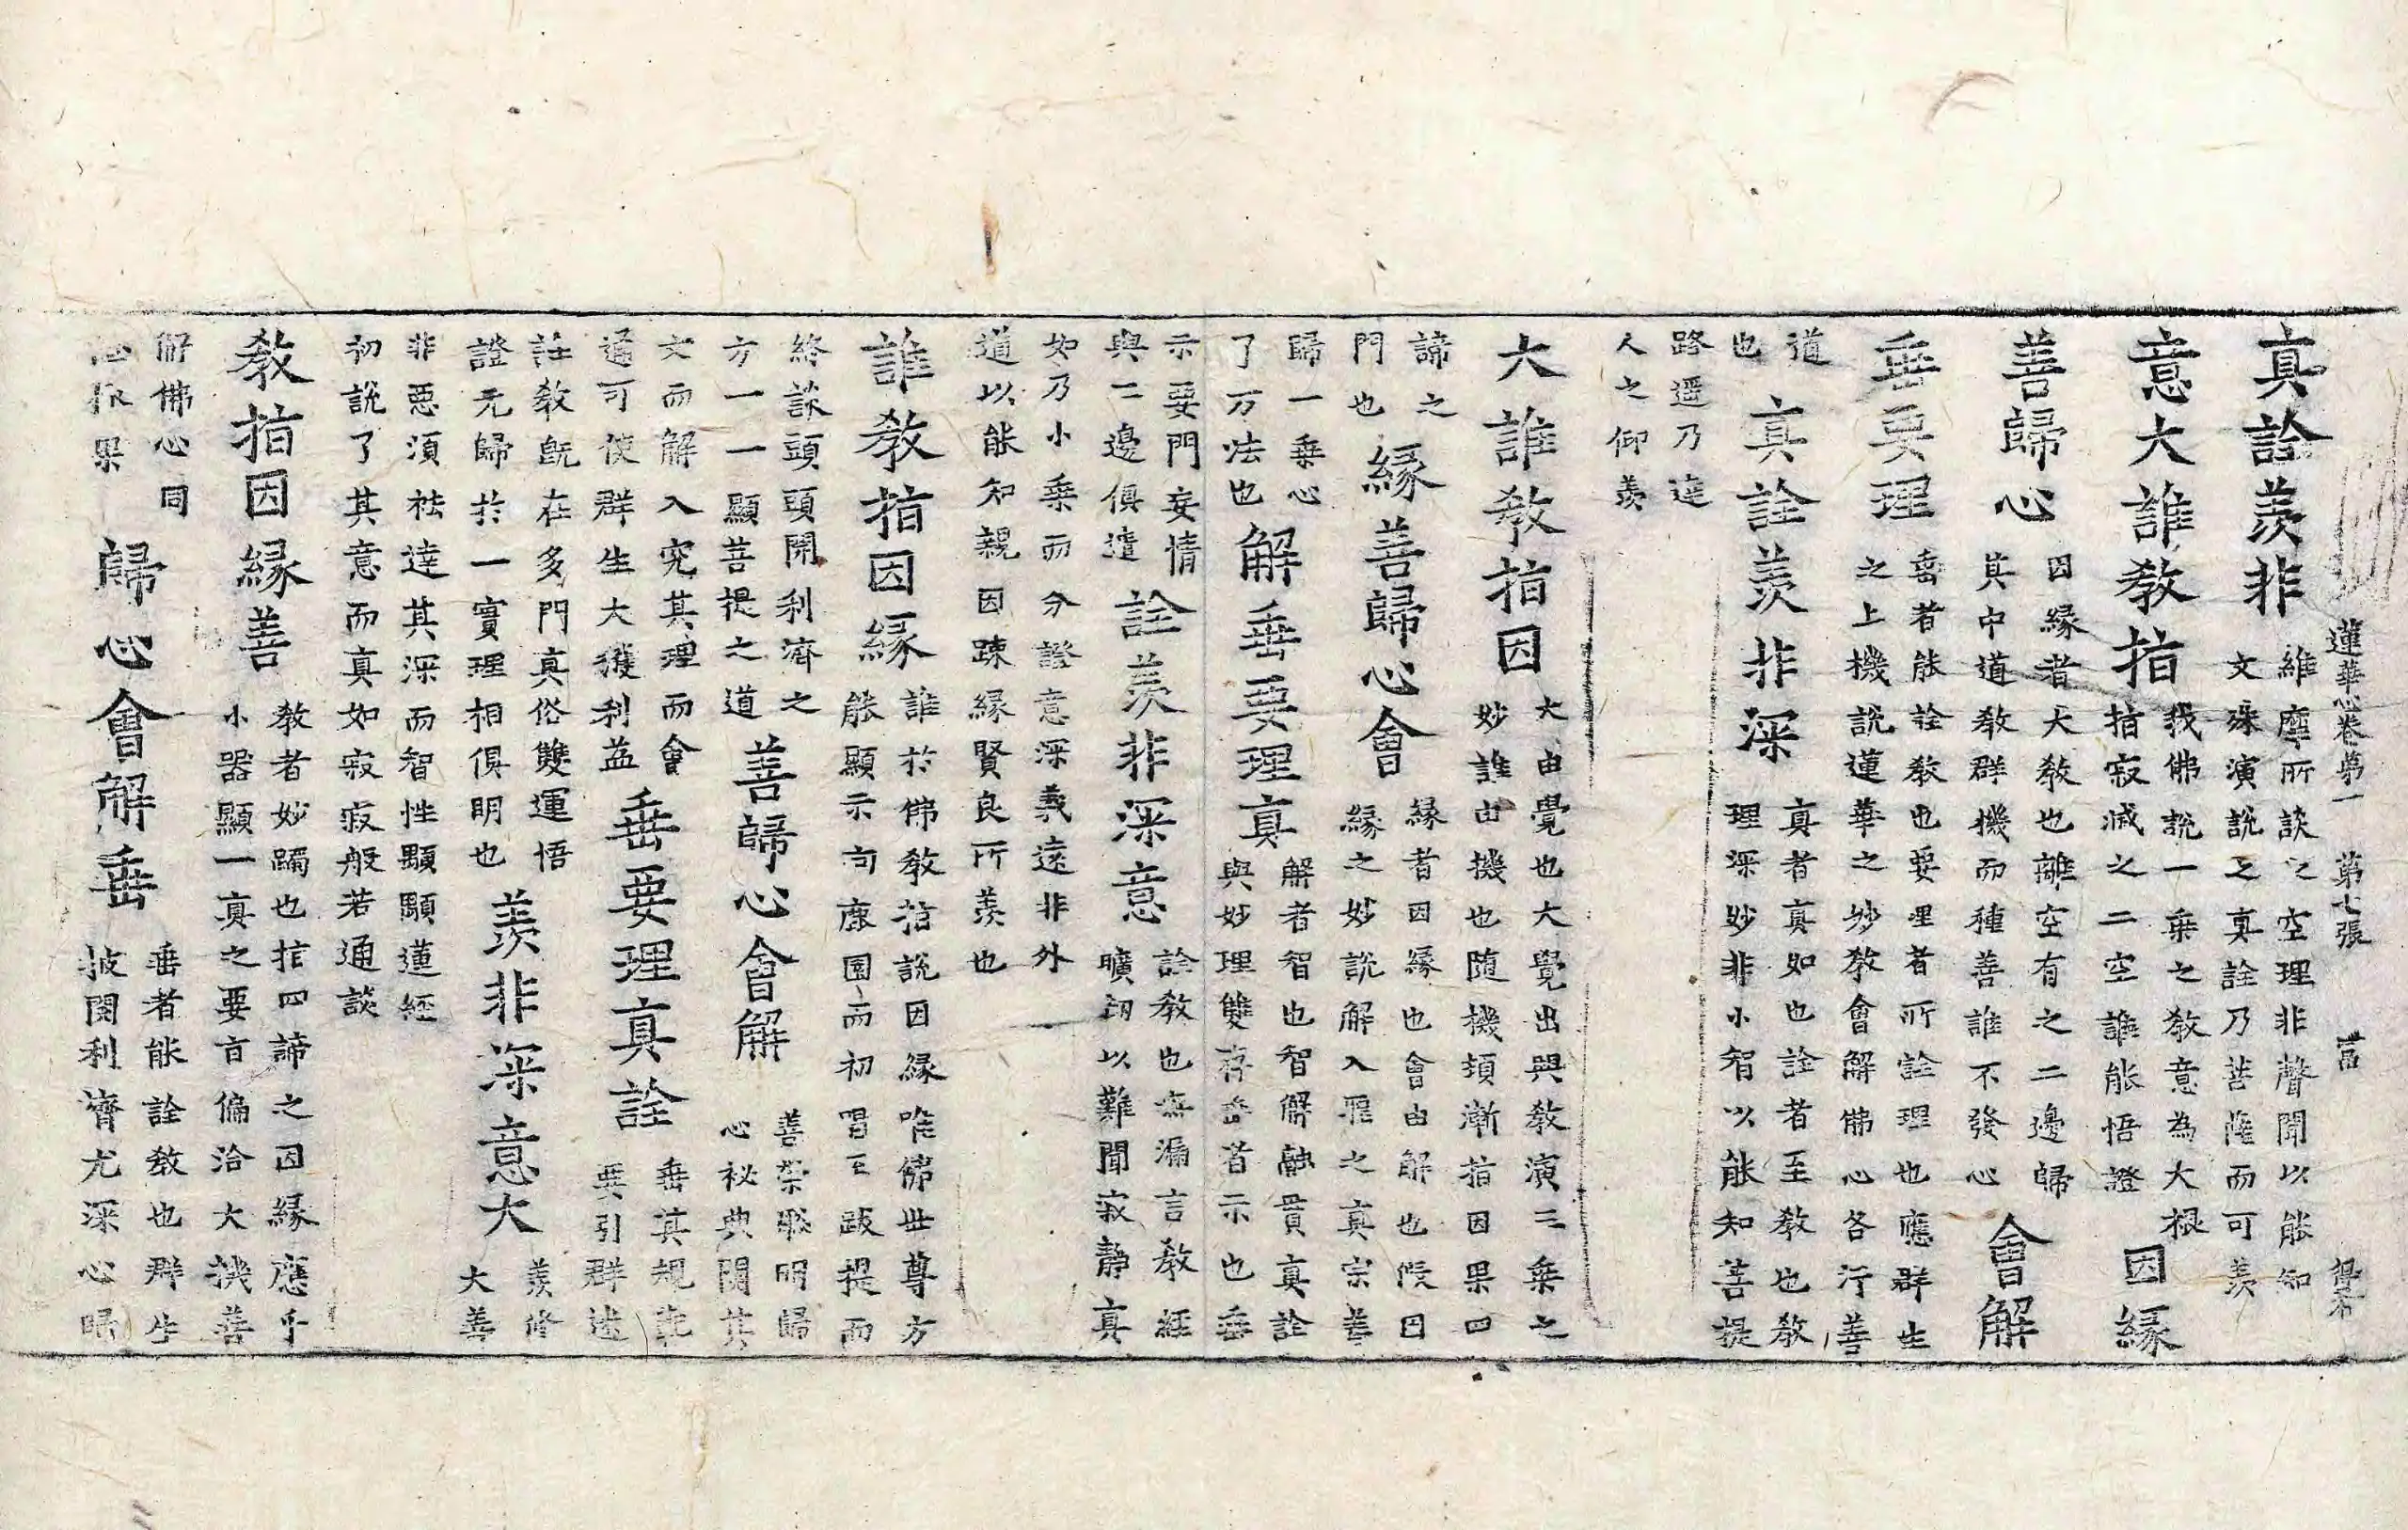 蓮華心卷第一 第七張
真詮羨非 維摩所談之空理非聲聞以能知
文殊演說之真詮乃菩薩而可羨
意大誰教指 我佛說一乘之教意為大根
指寂滅之二空誰能悟證 因緣
善歸心 因緣者大教也離空有之二邊歸
其中道教群機而種善誰不發心 會解
垂要理 垂者能詮教也要理者所詮理也應群生
之上機說蓮華之妙教會解佛心各行善
道
也 真詮羨非深 真者真如也詮者至教也教
理深妙非小智以能知菩提
路遥乃達
人之仰羨
大誰教指因 大由覺也大覺出興教演三乘之
妙誰由機也随機頓漸指因果四
諦之
門也 緣善歸心會 緣者因緣也會由解也假因
緣之妙說解入理之真宗善
歸一乘心
了万法也 解垂要理真 解者智也智解融貫真詮
與妙理雙存垂者示也垂
示要門妄情
與二邊俱遣 詮羨非深意 詮教也無漏言教經
曠劫以難聞寂静真
如乃小乘而分證意深義遠非外
道以能知親因踈緣賢良所羨也
誰教指因緣 誰於佛教指說因緣唯佛世尊方
能顯示向鹿園而初唱至跋提而
終談頭頭開利濟之
方一一顯菩提之道 善歸心會解 善崇聡明歸
心祕典閱其
文而解入究其理而會
通可使群生大獲利益 垂要理真詮 垂其規範
要引群迷
詮教既在多門真俗雙運悟
證元歸於一實理相俱明也 羨非深意大 羨修
大善
非惡須祛達其深而智性顯顯蓮經
初說了其意而真如寂寂般若通談
教指因緣善 教者妙躅也指四諦之因緣應乎
小器顯一真之要旨偏洽大機善
解佛心同
果 歸心會解垂 垂者能詮教也群生
披閱利濟尤深心歸